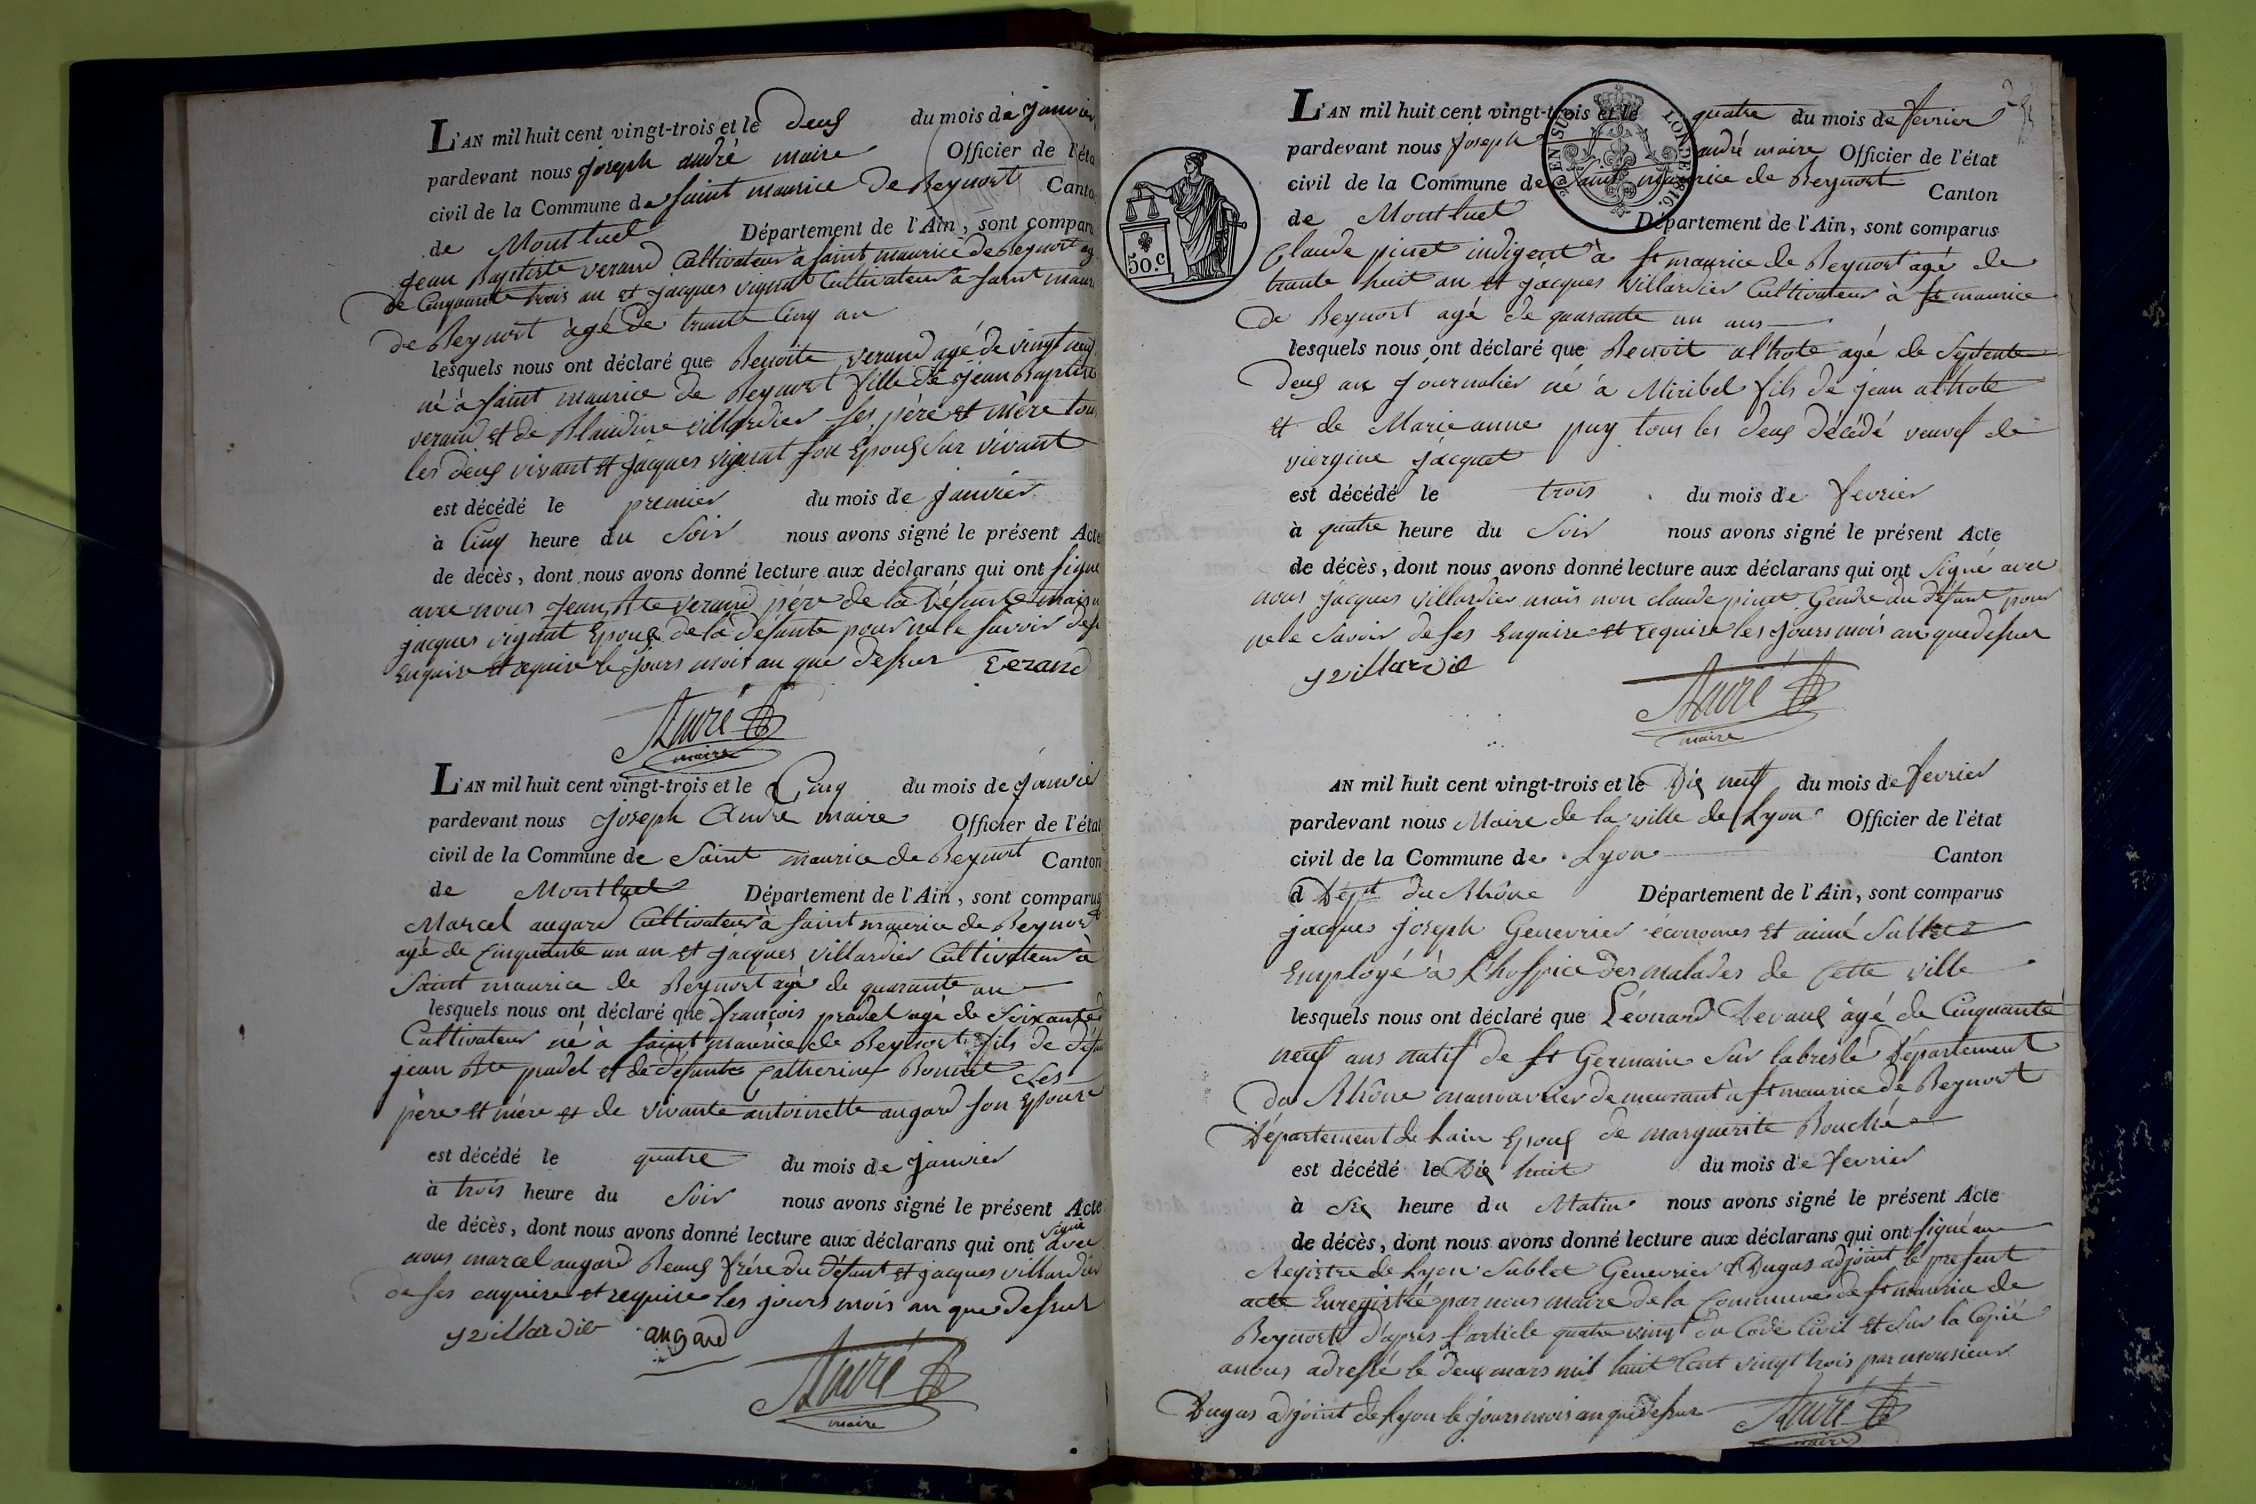 L'AN mil huit cent vingt-trois et le deuξ du mois de janvier
pardevant nous joseph andré maire Officier de l'éta
civil de la Commune de saint maurice De Beynost Canto
de Montluel Département de l'Ain, sont comparu
jean Baptiste verand Cultivateur à saint maurice de Beynost
de Cinquante trois an et jacques vignat Cultivateur à saint maur
de Beynost âgé De trante Cinq an
lesquels nous ont déclaré que Benoite verand agé de vingt neuf
né à saint maurice de Beynost fille de jean Baptiste
verand et de Blandine villardier ses père et mère tou
les deuξ vivant et jacques vignat son Epouξ sur vivant
est décédé le premier du mois de janvier
à Cinq heure du Soir nous avons signé le présent Acte
de décès, dont nous avons donné lecture aux déclarans qui ont signé
avec nous jean Bte verand père de la Défunte mais
jacques vignat Epouξ de la défunte pour ne le savoir de
Enquire et require le jours mois an que dessus Verand
André
maire
L'AN mil huit cent vingt-trois et le Cinq du mois de janvié
pardevant nous joseph André maire Officier de l'état
civil de la Commune de Saint maurice de Beynost Canton
de Montluel Département de l'Ain, sont comparus
Marcel augard Cultivateur à saint maurice de Beynost
agé de Cinquante un an et jacques villardier Cultivateur à
Saint maurice de Beynost agé de quarante an
lesquels nous ont déclaré que françois pradel agé de Soixante
Cultivateur né à saint maurice de Beynost fils de défu
jean Bte pradel et de défunte Catherine Bonnet Ses
père et mère et de vivante antoinette augard son Epouse
est décédé le quatre du mois de janvier
à trois heure du Soir nous avons signé le présent Acte
de décès, dont nous avons donné lecture aux déclarans qui ont signé avec
nous marcel augard Beauξ frère du défunt et jacques villardier
de ses enquire et require les jours mois an que dessus
j villardié augard
André
maire
L'AN mil huit cent vingt-trois et le quatre du mois de fevrier
pardevant nous joseph andré maire Officier de l'état
civil de la Commune de saint maurice de Beynost Canton
de Montluel Département de l'Ain, sont comparus
Claude pinet indigent à st maurice de Beynost agé de
trante huit an et jacques villardier Cultivateur à st maurice
de Beynost agé de quarante un ans
lesquels nous ont déclaré que Benoit alhote agé de Septente
deuξ an journalier né à Miribel fils de jean alhote
et de Marie anne puy tous les deuξ décédé veuvf de
viergine jacquet
est décédé le trois du mois de fevrier
à quatre heure du Soir nous avons signé le présent Acte
de décès, dont nous avons donné lecture aux déclarans qui ont signé avec
nous jacques villardier mais non claude pinet Gendre du défunt pour
ne le savoir de ses Enquire et require les jours mois an que dessus
j villardié
André
maire
AN mil huit cent vingt-trois et le Diξ neuf du mois de fevrier
pardevant nous Maire de la ville de Lyon Officier de l'état
civil de la Commune de Lyon Canton
d Dépt du Rhône Département de l'Ain, sont comparus
jacques joseph Genevrier économes et aimé Sublet
Employé à l'hospice des malades de Cette ville
lesquels nous ont déclaré que Léonard Devauξ âgé de Cinquante
neuf ans natif de st Germain sur labresle Département
du Rhône manouvrier demeurant à st maurice de Beynost
Département de lain Epouξ de marguerite Bouché
est décédé le Diξ huit du mois de fevrier
à Siξ heure du Matin nous avons signé le présent Acte
de décès, dont nous avons donné lecture aux déclarans qui ont signé au
Registre de Lyon Sublet Genevrier & Dugas adjoint le présent
acte Enregistré par nous maire de la Commune de st maurice de
Beynost d'après l'article quatre vingt du Code Civil et Sur la Copie
anous adressé le deuξ mars mil huit Cent vingt trois par monsieur
Dugas adjoint de Lyon le jours mois an que dessus André
maire
50.c